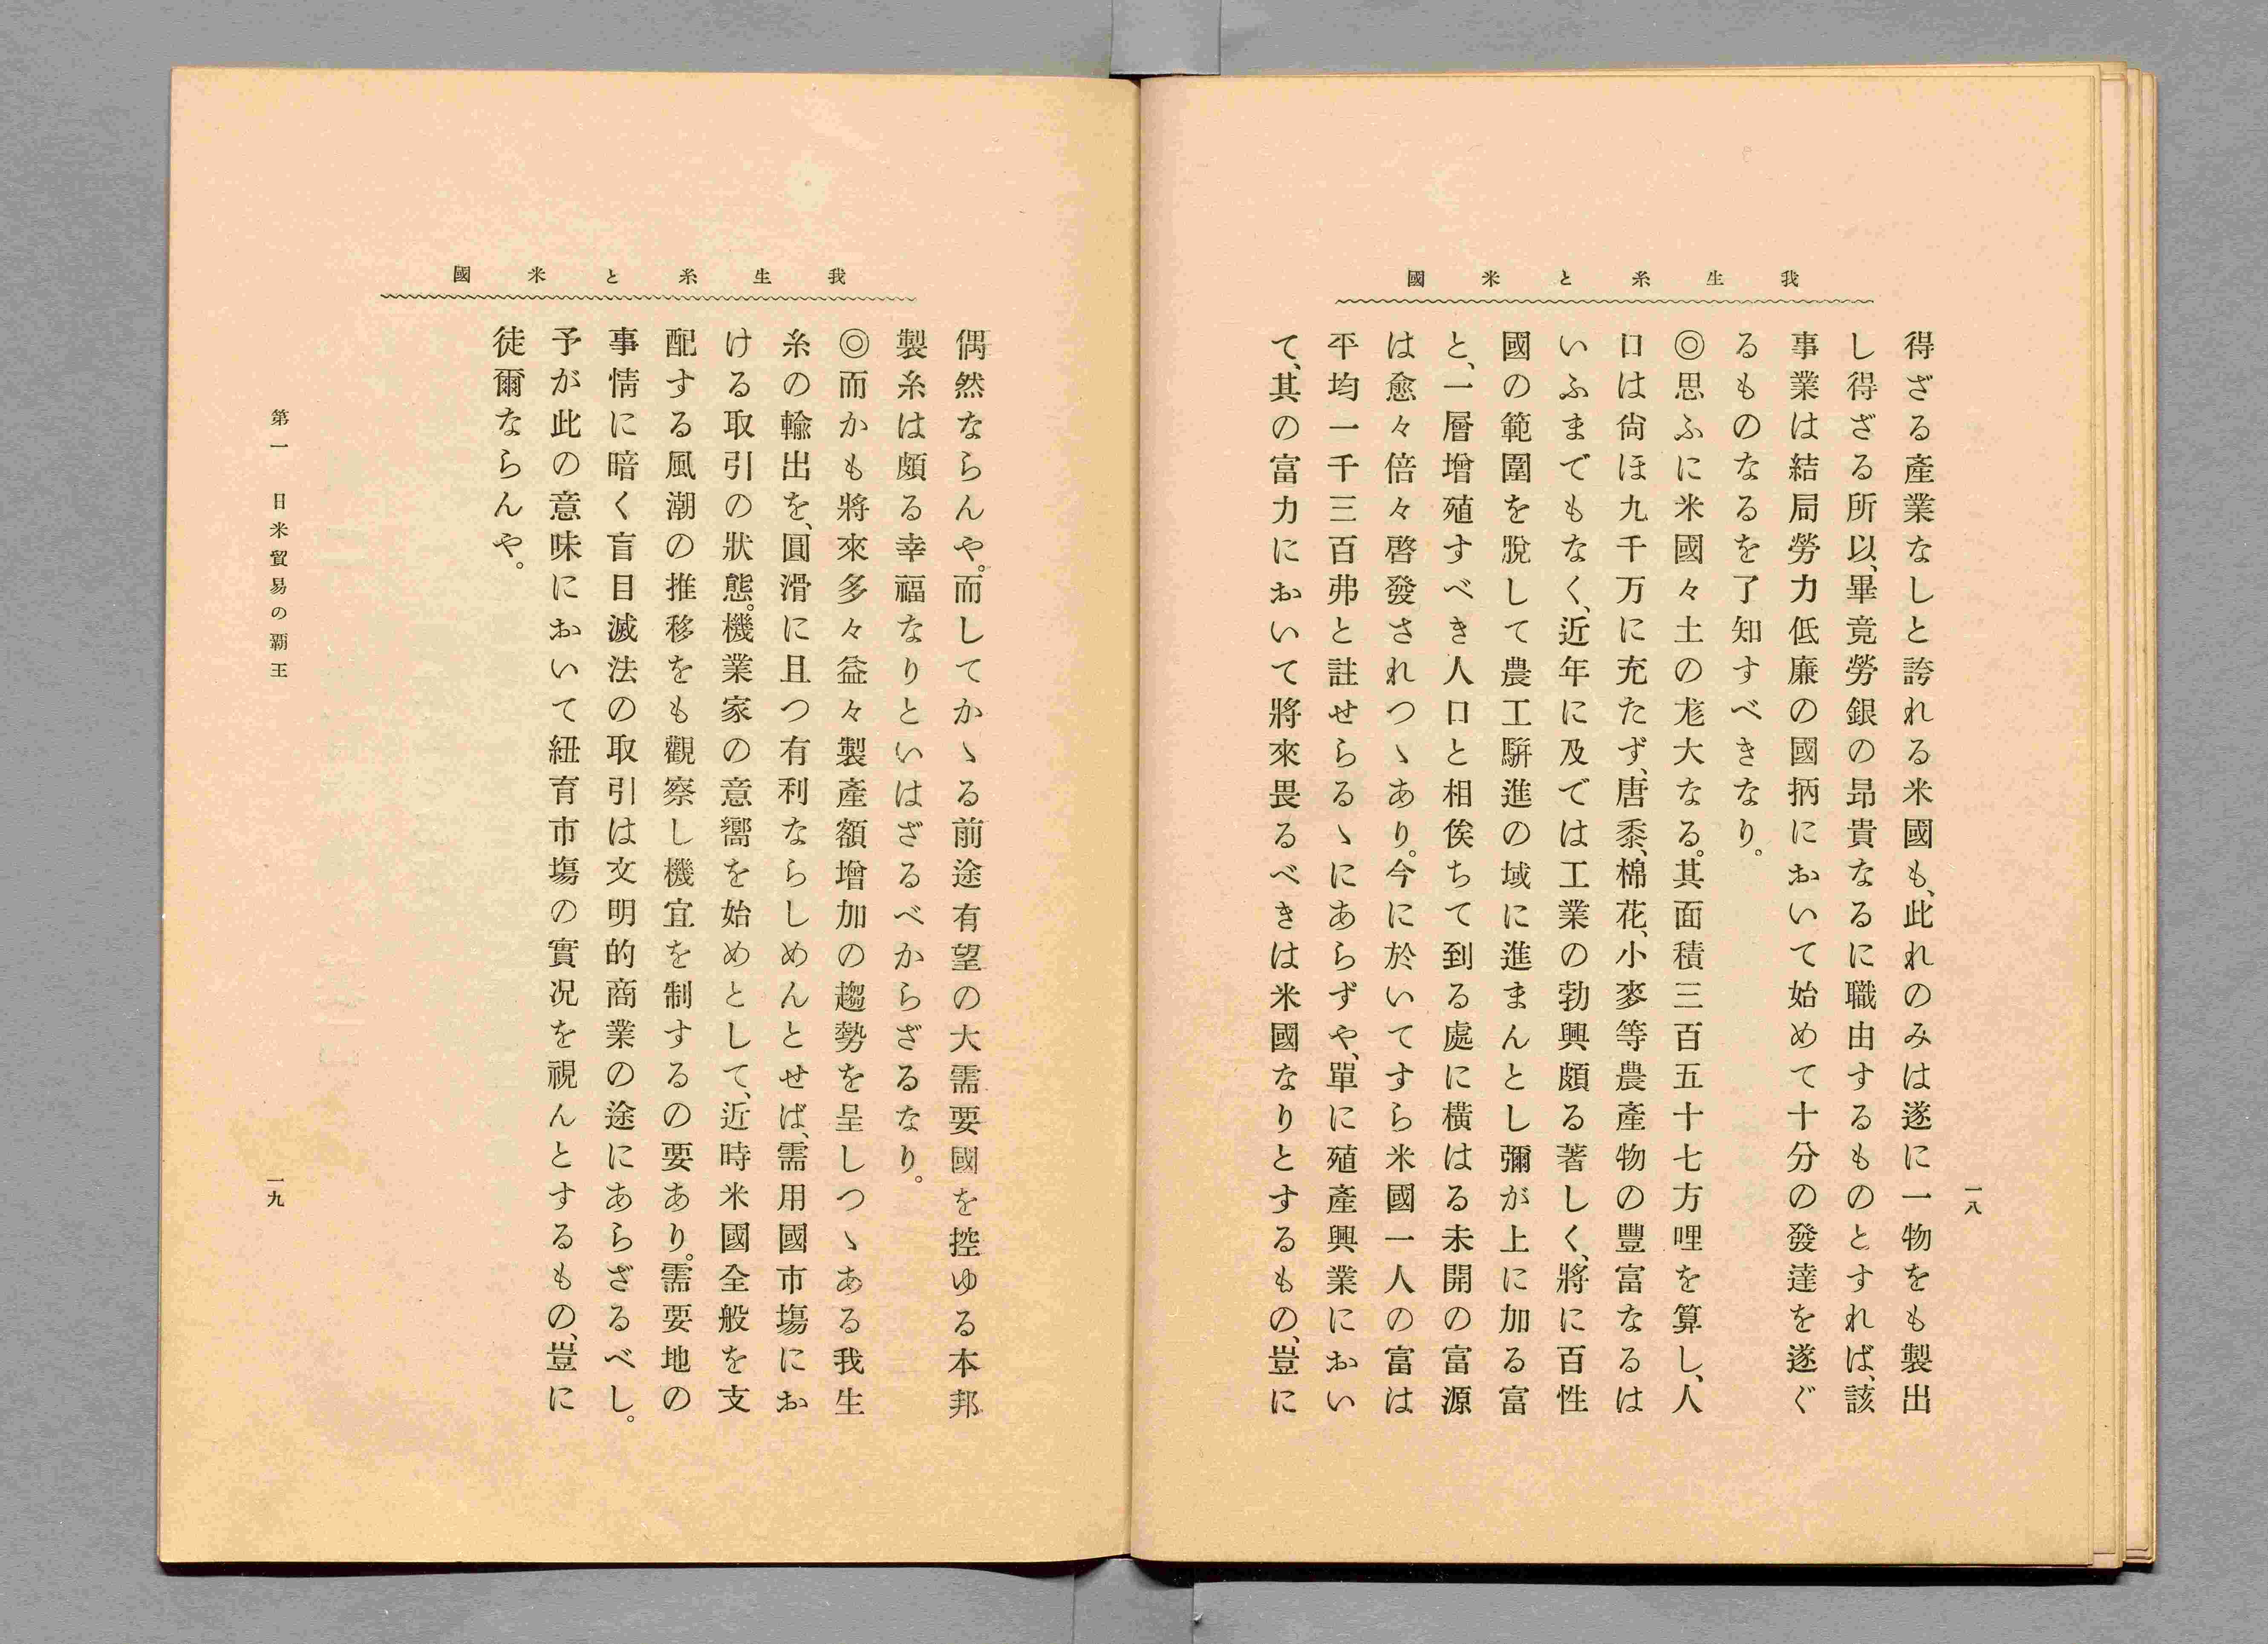 我生糸と米國
一八
得ざる產業なしと誇れる米國も、此れのみは遂に一物をも製出
し得ざる所以、畢竟勞銀の昻貴なるに職由するものとすれば、該
事業は結局勞力低廉の國柄において始めて十分の發達を遂ぐ
るものなるを了知すべきなり。
◎思ふに米國々土の尨大なる。其面積三百五十七方哩を算し、人
口は尙ほ九千万に充たず、唐黍、棉花、小麥等農產物の豐富なるは
いふまでもなく、近年に及では工業の勃興頗る著しく、將に百性
國の範圍を脫して農工駢進の域に進まんとし彌が上に加る富
と、一層增殖すべき人口と相俟ちて到る處に橫はる未開の富源
は愈々倍々啓發されつゝあり。今に於いてすら米國一人の富は
平均一千三百弗と註せらるゝにあらずや、單に殖產興業におい
て、其の富力において將來畏るべきは米國なりとするもの、豈に
我生糸と米國
偶然ならんや。而してかゝる前途有望の大需要國を控ゆる本邦
製糸は頗る幸福なりといはざるべからざるなり。
◎而かも將來多々益々製產額增加の趨勢を呈しつゝある我生
糸の輸出を、圓滑に且つ有利ならしめんとせば、需用國市場にお
ける取引の狀態。機業家の意嚮を始めとして、近時米國全般を支
配する風潮の推移をも觀察し機宜を制するの要あり。需要地の
事情に暗く盲目滅法の取引は文明的商業の途にあらざるべし。
予が此の意味において紐育市塲の實况を視んとするもの、豈に
徒爾ならんや。
第一 日米貿易の覇王
一九